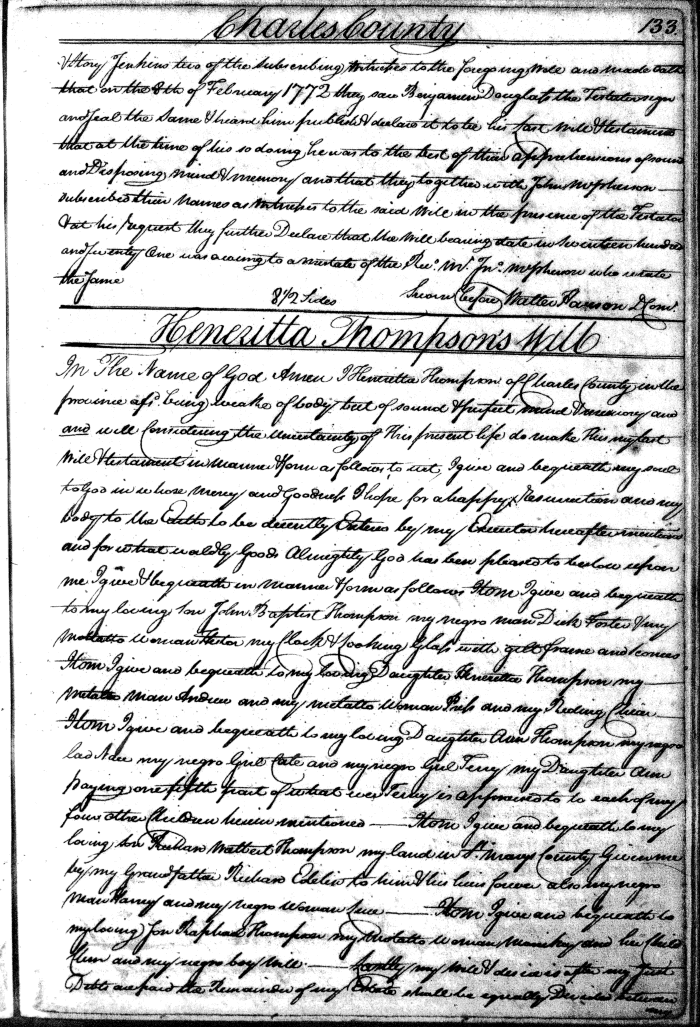 Charles County 133
& Story Jenkins two of the subscribing witnesses to the foregoing Will and made oath
that on the 8th of February 1772 they saw Benjamin Douglass the Testator sign
and seal the same & heard him publish & declare it to be his last Will & testament
that at the time of his so doing he was to the best of their apprehensions of sound
and Disposing mind & memory and that they together with John McPherson
subscribed their names as witnesses to the said Will in the presence of the Testator
& at his request they further Declare that the Will bearing date in Seventeen hundred
and seventy One was owing to a mistake of the Mr. Jno. McPherson who wrote
the same
8 1/2 Sides Sworn before Walter Hanson
Heneritta Thompson's Will
In The Name of God Amen I Henritta Thompson of Charles County in the
province afs. being weake of body but of sound & perfect mind & memory and
and will Considering the uncertainty of This present life do make This my last
Will & testament in manner & form as follows to wit, I give and bequeath my soul
to God in whose mercy and Goodness I hope for a happy Resurection and my
body to the Earth to be decently by my Executor hereafter mentiond
and for what worldly Goods Almighty God has been pleased to bestow upon
me I give & bequeath in manner & form as follows Item I give and bequeath
to my loving son John Baptist Thompson my negro man Dick Foster & my
molatto woman my Clock & Looking Glass with gilt frame and sconces
Item I give and bequeath to my loving Daughter Heneritta Thompson my
molatto man Andrew and my molatto Woman and my Riding Chair
Item I give and bequeath to my loving Daughter Ann Thompson my negro
lad my negro Girl Cate and my negro Girl Terry my Daughter Ann
paying one fifth part of what Terry is appraised to to each of my
four other Children herein mentioned Item I give and bequeath to my
loving son Thompson my land in St. Marys County Given me
by my Grandfather Richard Edelin to him & his heirs forever also my negro
man Harry and my negro Woman Item I give and bequeath to
my loving Son Raphael Thompson my molatto Woman and her Child
and my negro boy Will Lastly my Will & desire is after my Just
Debts are paid the Remainder of my Estate shall be equally Divided between